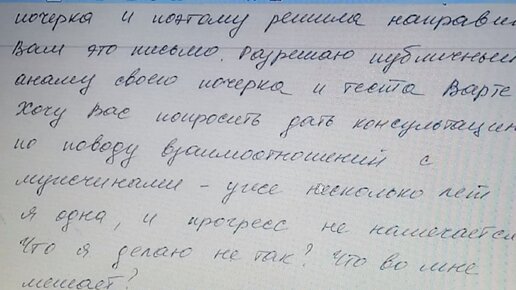 почерка и поэтому решила направи
Вам это письмо. Разрешаю публичный
анализ своего почерка и теста Варте
Хочу Вас попросить дать консультацию
по поводу взаимоотношений с
мужчинами – уже несколько лет
я одна, и прогресс не намечается
Что я делаю не так? Что во мне
мешает?